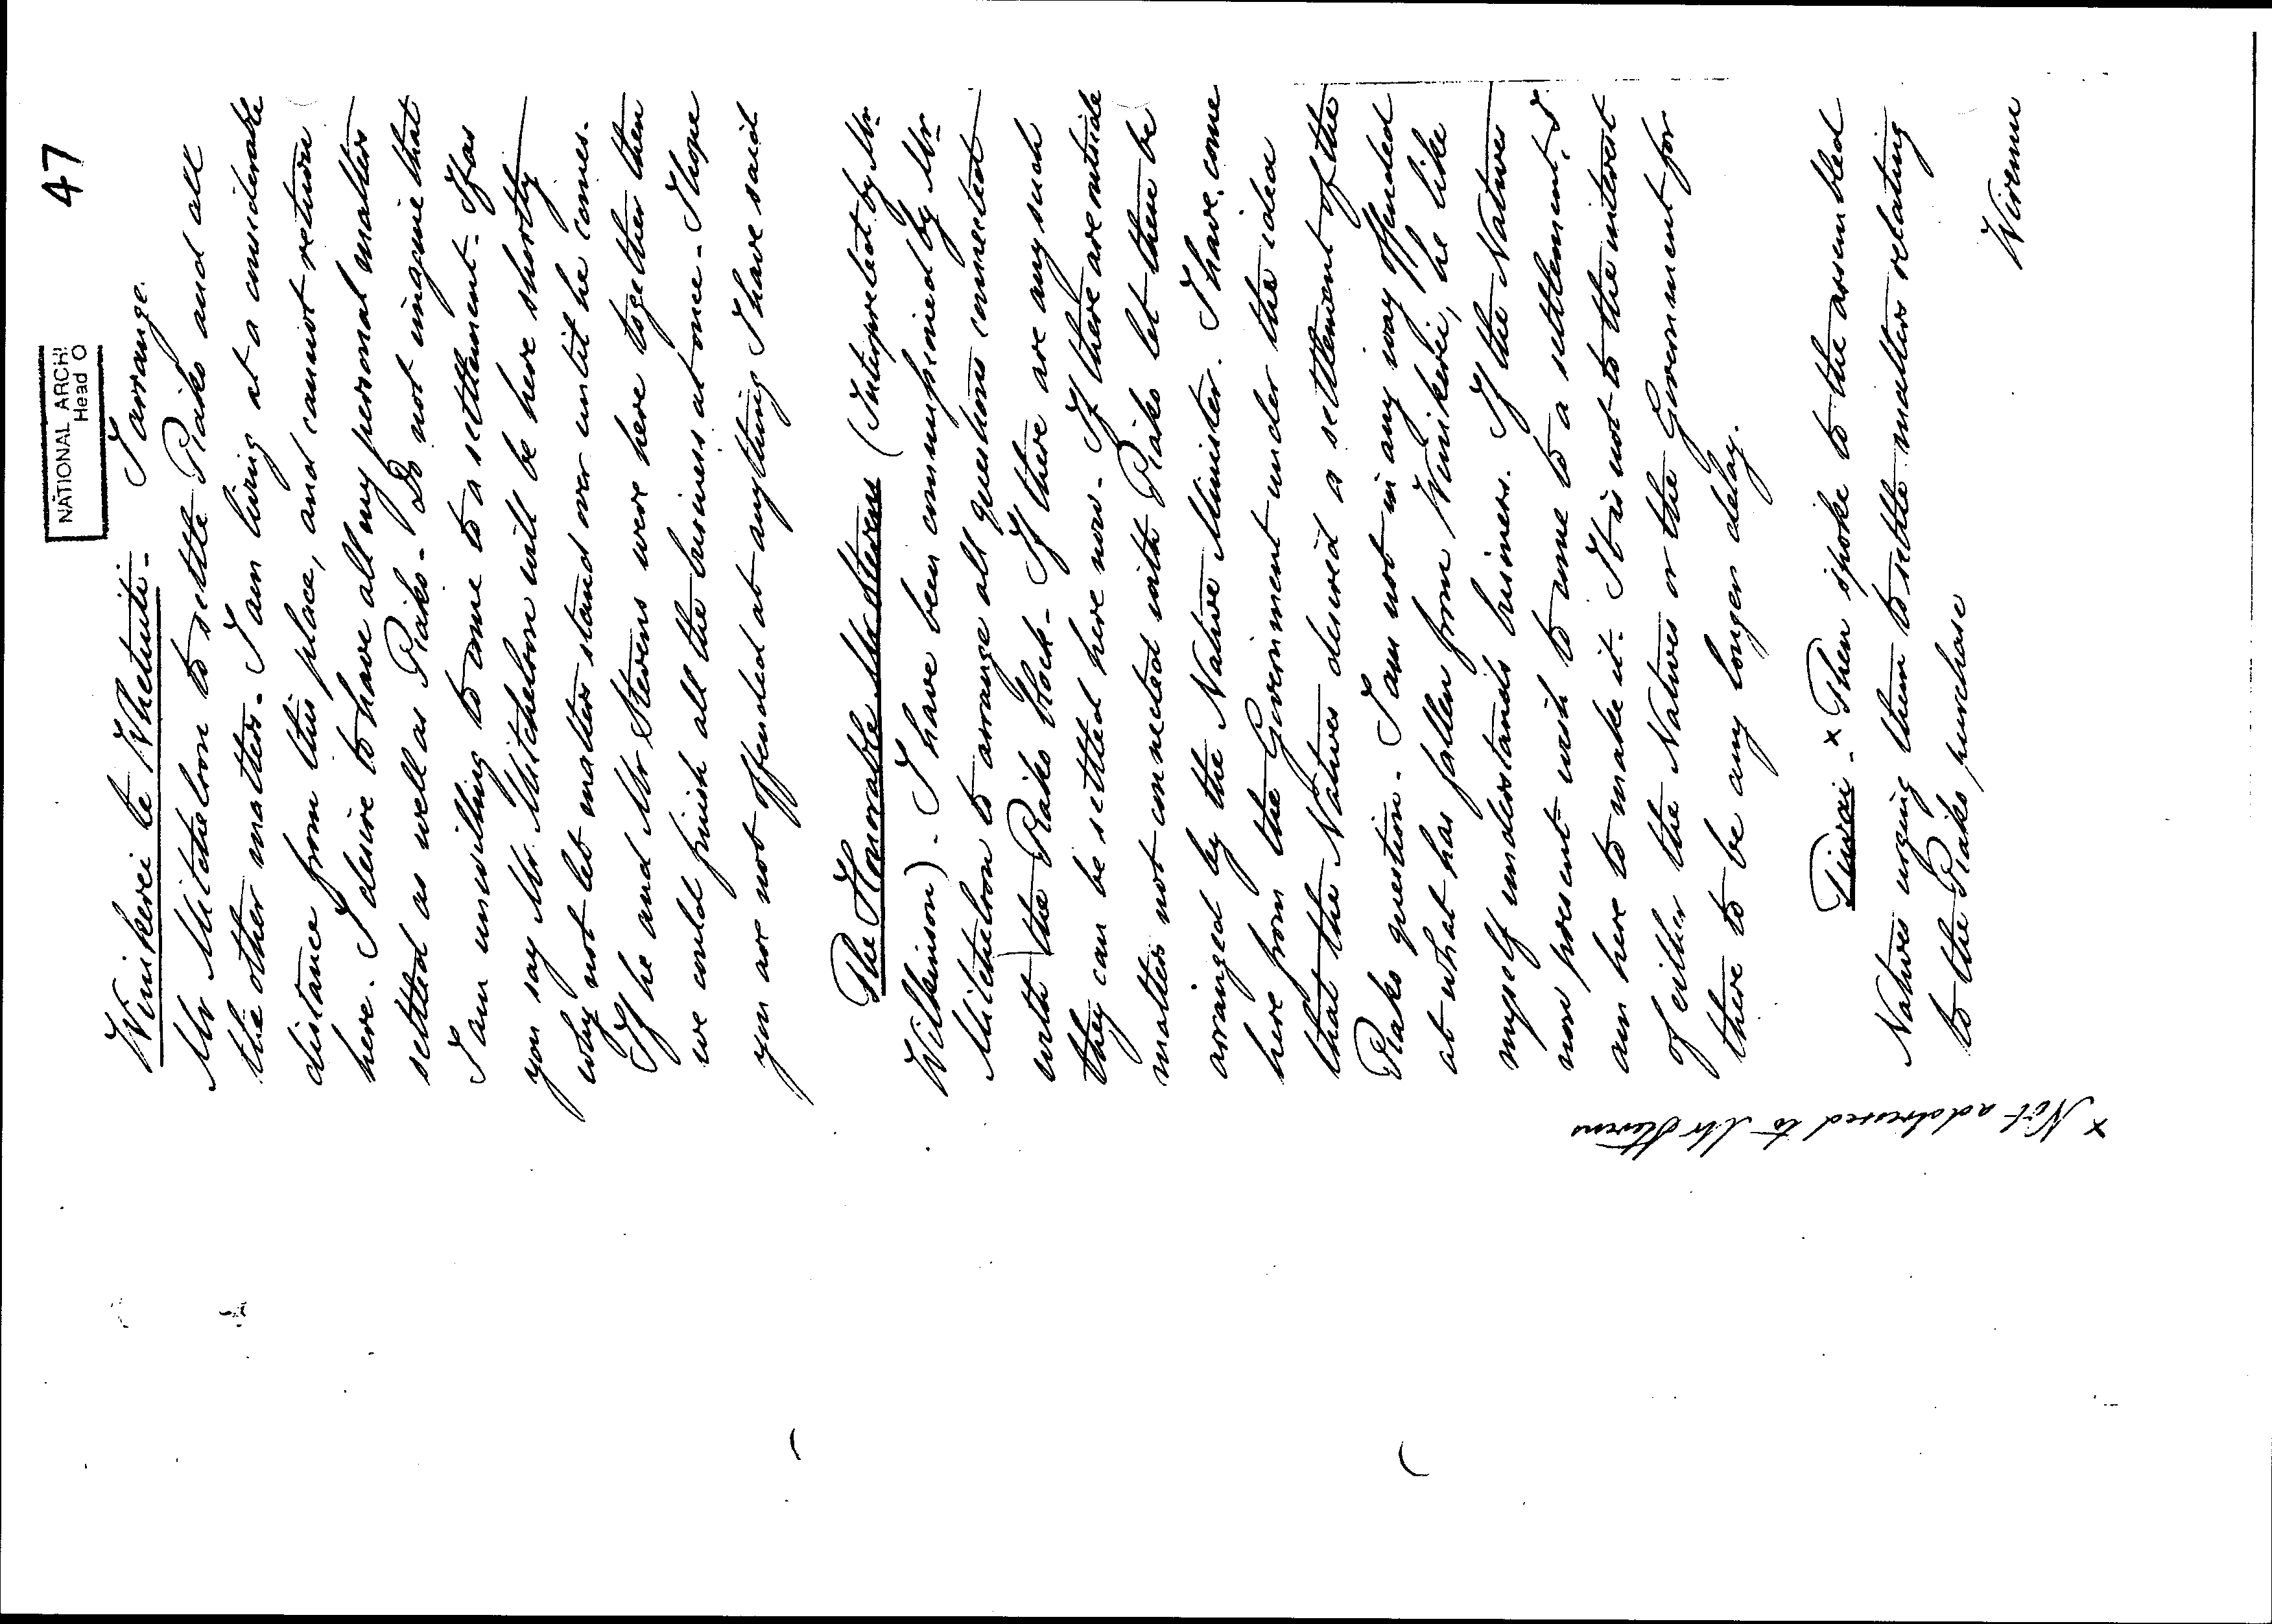 47
NATIONAL ARCHI
Head O
Winikerei te Whetuiti - I arrange.
Mr Mitchelson to settle Piako and all
the other matters - I am living at a considerable
distance from this place, and cannot return
here. I desire to have all my personal matters
settled as well as Piako - Do not imagine that
I am unwilling to come to a settlement - If as
you say Mr. Mitchelson will be here shortly
why not let matters stand over until he comes.
If he and Mr Stevens were here together then
we could finish all the business at once - I hope
you are not offended at anything I have said
The Honorable Mr Stevens (Interpreted by Mr.
Wilkinson) - I have been commissioned by Mr.
Mitchelson to arrange all questions connected
with the Piako block - If there are any such
they can be settled here now - If there are outside
matters not connected with Piako let them be
arranged by the Native Minister. I have come
here from the Government under the idea
that the Natives desired a settlement of the
Piako question - I am not in any way offended
at what has fallen from Winikerei, he like
myself understands business. If the Natives
now present wish to come to a settlement, I
am here to make it - It is not to the interest
of either the Natives or the Government for
there to be any longer delay.
Tiwai - x Then spoke to the assembled
Natives urging them to settle matters relating
to the Piako purchase
Wiremu
x Not addressed to Mr Stevens